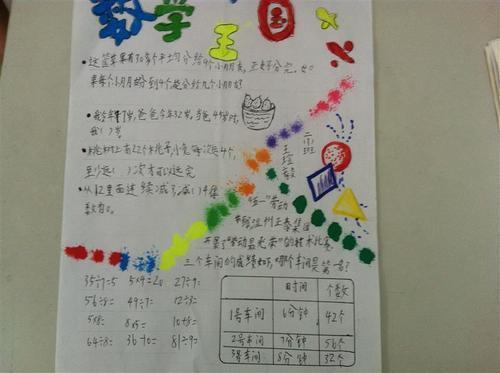 数学王国
•这筐苹果有70多个平均分给9个小朋友,正好分完。如
果每个小朋友分到4个能分给几个小朋友
•我今年7岁,爸爸今年32岁,当爸48岁时,
我( )岁。
•桃树上有22个桃子,小兔每次运4个,
至少运( )次才可以运完
•从12里面连续减3,减( )个4得
数为0。
二(5)班
王煊毅
"五一"劳动
节,温州正泰集团
开展了"劳动最光荣"的技术比赛
三个车间的成绩如下,哪个车间是第一名?
35÷7=5 5×4=20 27÷9=
56÷8= 49÷7= 12÷3=
5×8= 8×5= 10+8=
64÷8= 36-10= 81÷9=
时间 个数
1号车间 6分钟 42个
2号车间 7分钟 56个
3号车间 8分钟 32个